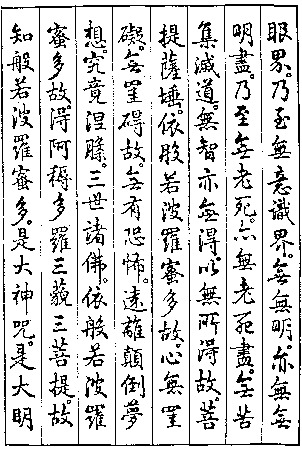 眼界。乃至無意識界。無無明。亦無無
明盡。乃至無老死。亦無老死盡。無苦
集滅道。無智亦無得。以無所得故。菩
提薩埵。依般若波羅蜜多故。心無罣
礙。無罣碍故。無有恐怖。遠離顛倒夢
想。究竟涅槃。三世諸佛。依般若波羅
蜜多故。得阿耨多羅三藐三菩提。故
知般若波羅蜜多。是大神咒。是大明